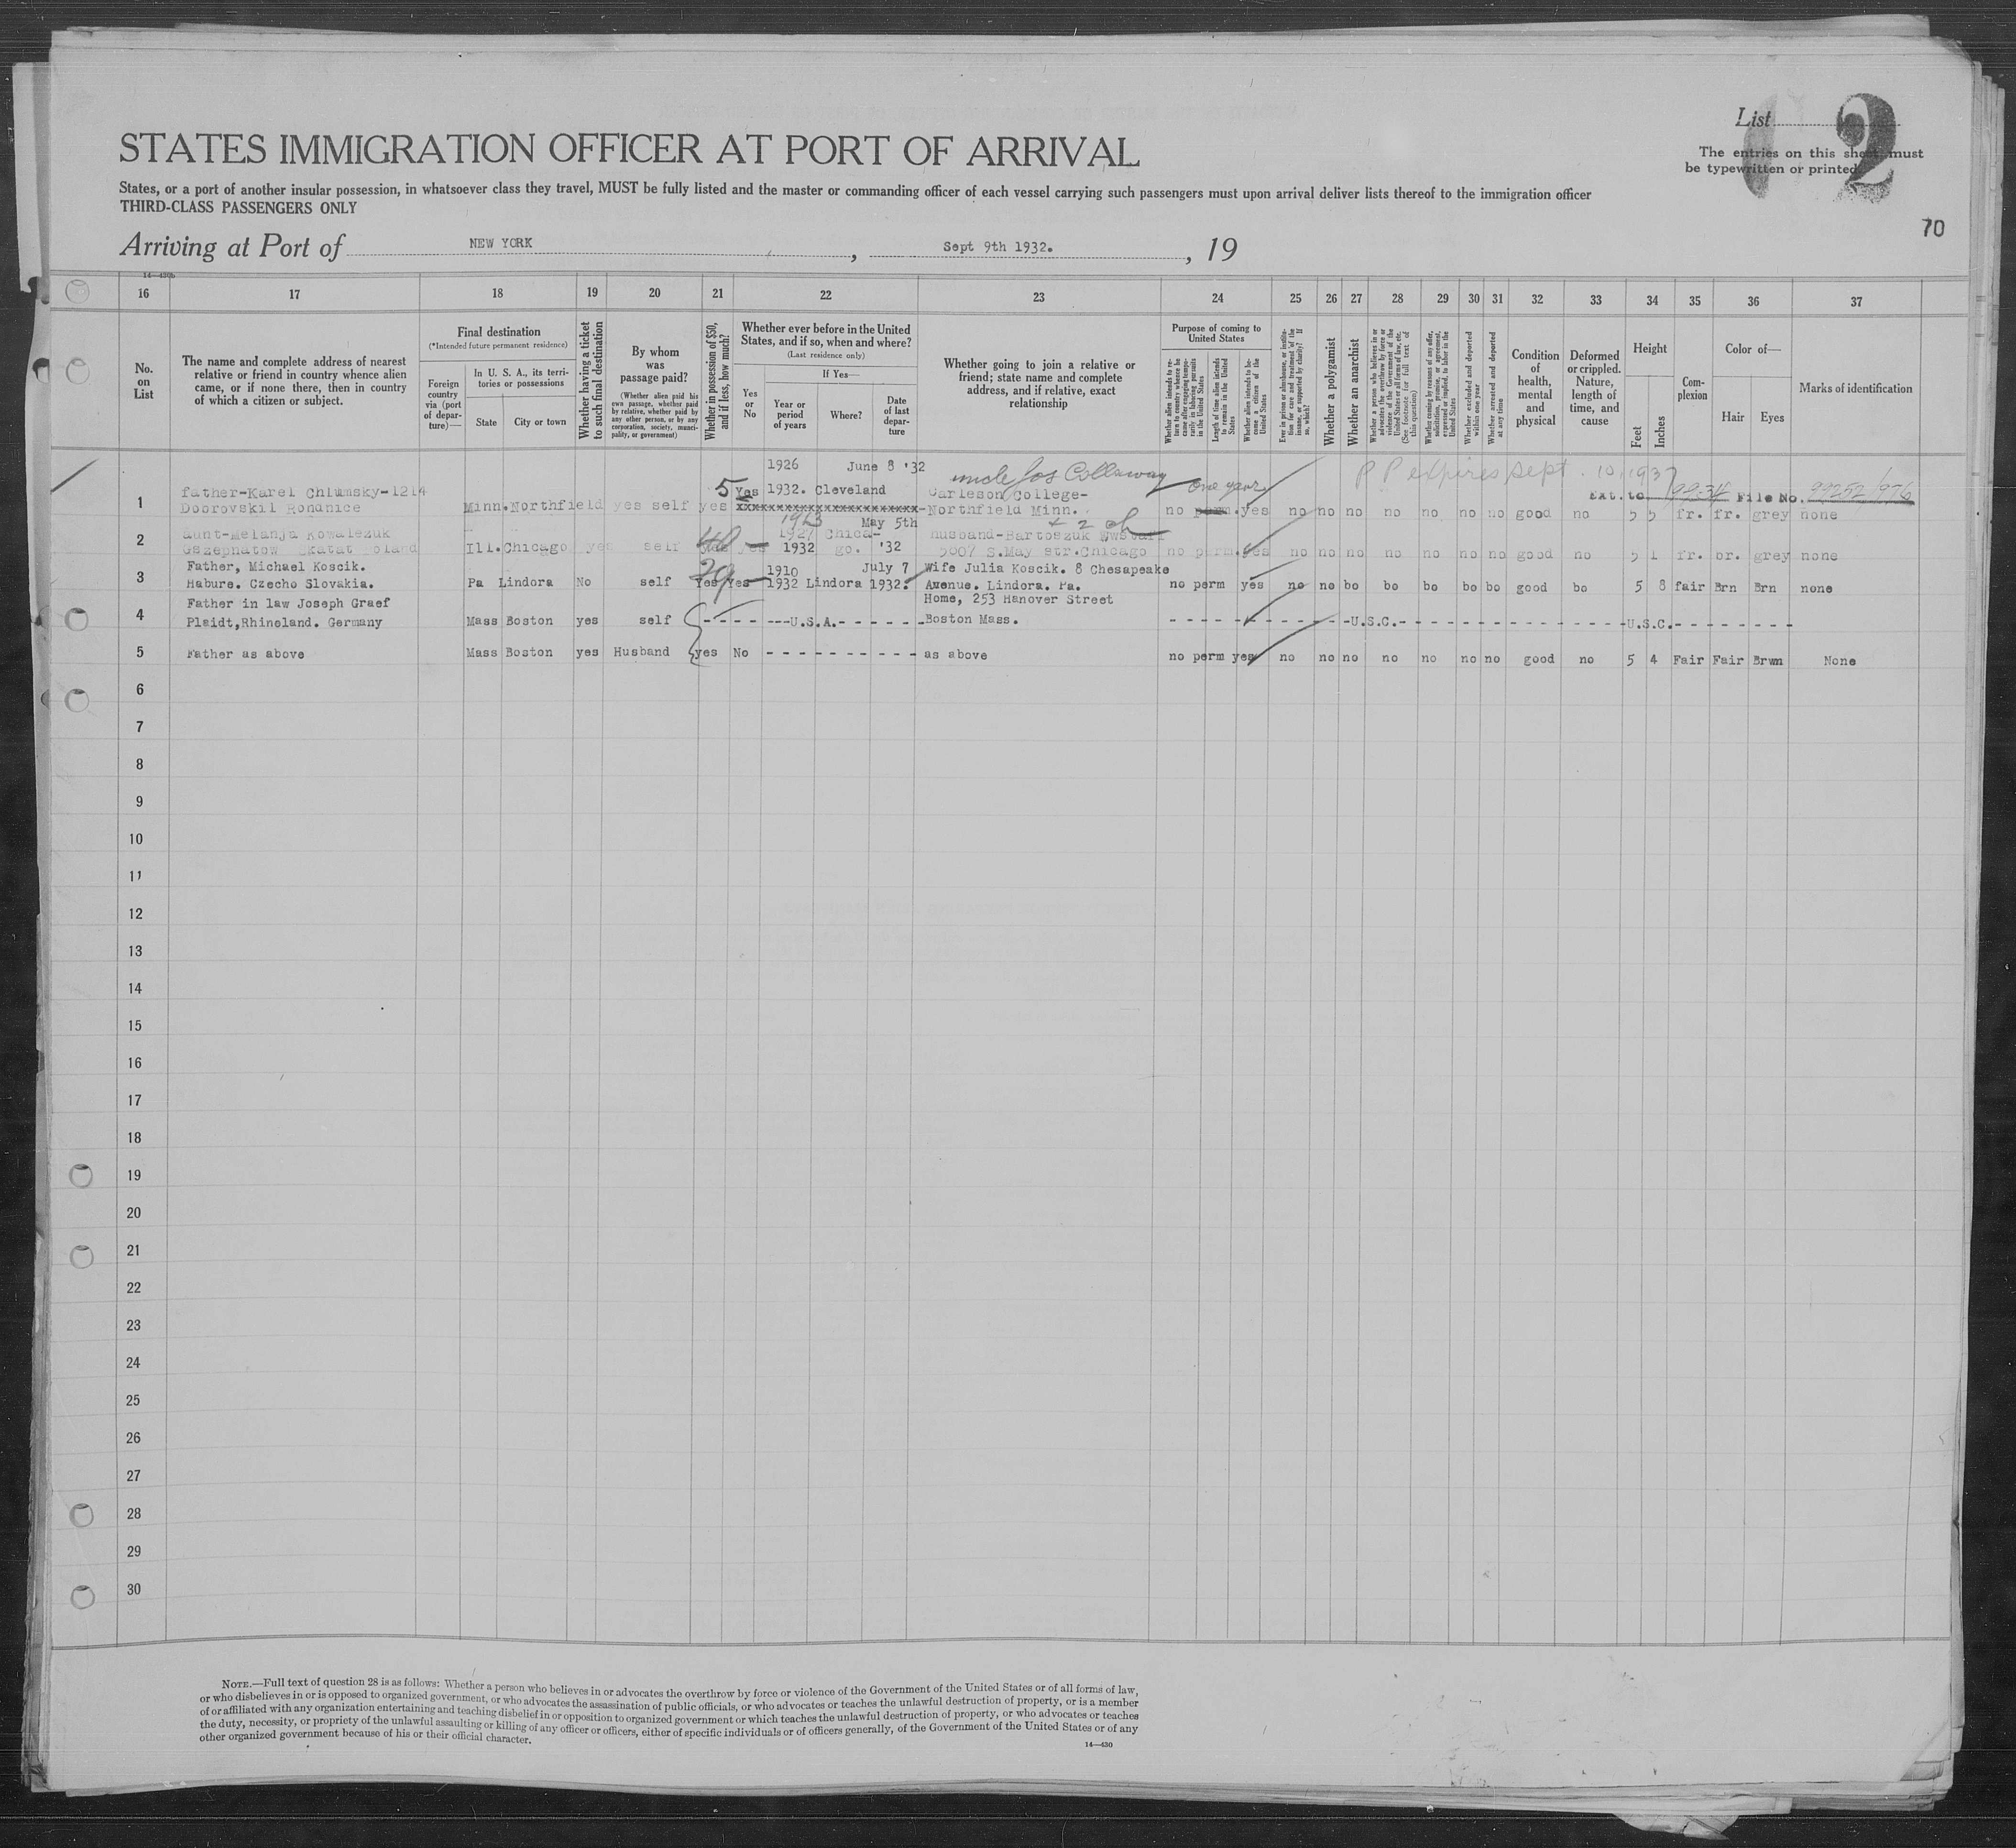 List
2
The entries on this sheet must
be typewritten or printed
STATES IMMIGRATION OFFICER AT PORT OF ARRIVAL
States, or a port of another insular possession, in whatsoever class they travel, MUST be fully listed and the master or commanding officer of each vessel carrying such passengers must upon arrival deliver lists thereof to the immigration officer
THIRD-CLASS PASSENGERS ONLY
70
Arriving at Port of NEW YORK, Sept 9th 1932., 19
16 17 18 19 20 21 22 23 24 25 26 27 28 29 30 31 32 33 34 35 36 37
No. on List
The name and complete address of nearest
relative or friend in country whence alien
came, or if none there, then in country
of which a citizen or subject.
Final destination
(*Intended future permanent residence)
Foreign country via (port of departure)—
In U. S. A., its territories or possessions
State
City or town
Whether having a ticket to such final destination
By whom was passage paid?
(Whether alien paid his own passage, whether paid by relative, whether paid by any other person, or by any corporation, society, municipality, or government)
Whether in possession of $50, and if less, how much?
Whether ever before in the United States, and if so, when and where?
(Last residence only)
Yes or No
If Yes—
Year or period of years
Where?
Date of last departure
Whether going to join a relative or
friend; state name and complete
address, and if relative, exact
relationship
Purpose of coming to United States
Whether alien intends to return to country whence he came after engaging temporarily in laboring pursuits in the United States
Length of time alien intends to remain in the United States
Whether alien intends to become a citizen of the United States
Ever in prison or almshouse, or institution for care and treatment of the insane, or supported by charity? If so, which?
Whether a polygamist
Whether an anarchist
Whether a person who believes in or advocates the overthrow by force or violence of the Government of the United States or all forms of law, etc. (See footnote for full text of this question)
Whether coming by reason of any offer, solicitation, promise, or agreement, expressed or implied, to labor in the United States
Whether excluded and deported within one year
Whether arrested and deported at any time
Condition of health, mental and physical
Deformed or crippled. Nature, length of time, and cause
Height
Feet
Inches
Complexion
Color of—
Hair
Eyes
Marks of identification
1926 June 8 '32 uncle Jos Collaway one year P P expires Sept. 10, 1937
1 father-Karel Chlumsky-1214 5 Yes 1932. Cleveland Carleson College- Ext. to File No. 99252/976
Dobrovskil Rondnice Minn. Northfield yes self yes xxxxxxxxxxxxxxxxxxxxxx-Northfield Minn. no perm. yes no no no no no no no good no 5 5 fr. fr. grey none
2 aunt-Melanja Kowalezuk 1913 1927 Chica- May 5th husband-Bartoszuk + 2 ch
Ill. Chicago yes self yes 1932 go. '32 5007 S.May str.Chicago no perm. yes no no no no no no no good no 5 1 fr. br. grey none
3 Father, Michael Koscik. 1910 July 7 Wife Julia Koscik. 8 Chesapeake
Habure. Czecho Slovakia. Pa Lindora No self Yes Yes 1932 Lindora 1932. Avenue. Lindora. Pa. no perm yes no no bo bo bo bo bo good bo 5 8 fair Brn Brn none
4 Father in law Joseph Graef Home, 253 Hanover Street
Plaidt,Rhineland. Germany Mass Boston yes self - - - - ---U.S.A.- - - - - - -Boston Mass. - - - - - -U.S.C.- - - - - - -U.S.C.- - - - - - - -
5 Father as above Mass Boston yes Husband yes No - - - - - - - - - - as above no perm yes no no no no no no no good no 5 4 Fair Fair Brwn None
6
7
8
9
10
11
12
13
14
15
16
17
18
19
20
21
22
23
24
25
26
27
28
29
30
NOTE.—Full text of question 28 is as follows: Whether a person who believes in or advocates the overthrow by force or violence of the Government of the United States or of all forms of law,
or who disbelieves in or is opposed to organized government, or who advocates the assassination of public officials, or who advocates or teaches the unlawful destruction of property, or is a member
of or affiliated with any organization entertaining and teaching disbelief in or opposition to organized government or which teaches the unlawful destruction of property, or who advocates or teaches
the duty, necessity, or propriety of the unlawful assaulting or killing of any officer or officers, either of specific individuals or of officers generally, of the Government of the United States or of any
other organized government because of his or their official character.
14—430